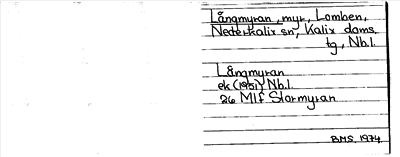 Långmyran, myr, Lomben,
Nederkalix sn, Kalix doms.
tg, Nb.l.
Långmyran
ek (1951) Nb.l.
26 Mlf Stormyran
BMS. 1974